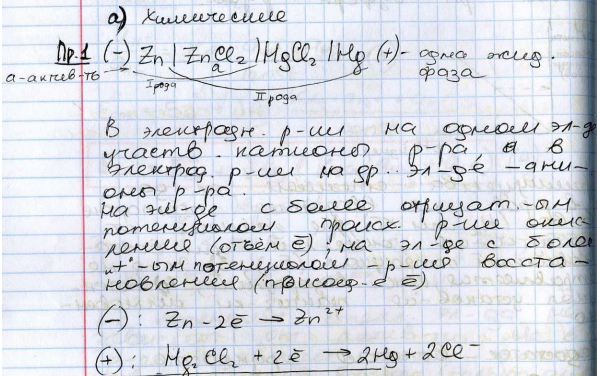 а) Химические
Пр.1 (-) Zn | ZnCl₂ | HgCl₂ | Hg (+) - одна жид.
а-актив-ть a фаза
I рода
II рода
В электродн. р-ии на одном эл-де
участв. катионы р-ра, а в
электрод. р-ии на др. эл-де - ани-
оны р-ра.
На эл-де с более отрицат.-ым
потенциалом происх. р-ия окис-
ления (отъём ē); на эл-де с более
"+"-ым потенциалом - р-ия восста-
новления (присоед-е ē)
(-): Zn - 2ē → Zn²⁺
(+): Hg₂Cl₂ + 2ē → 2Hg + 2Cl⁻